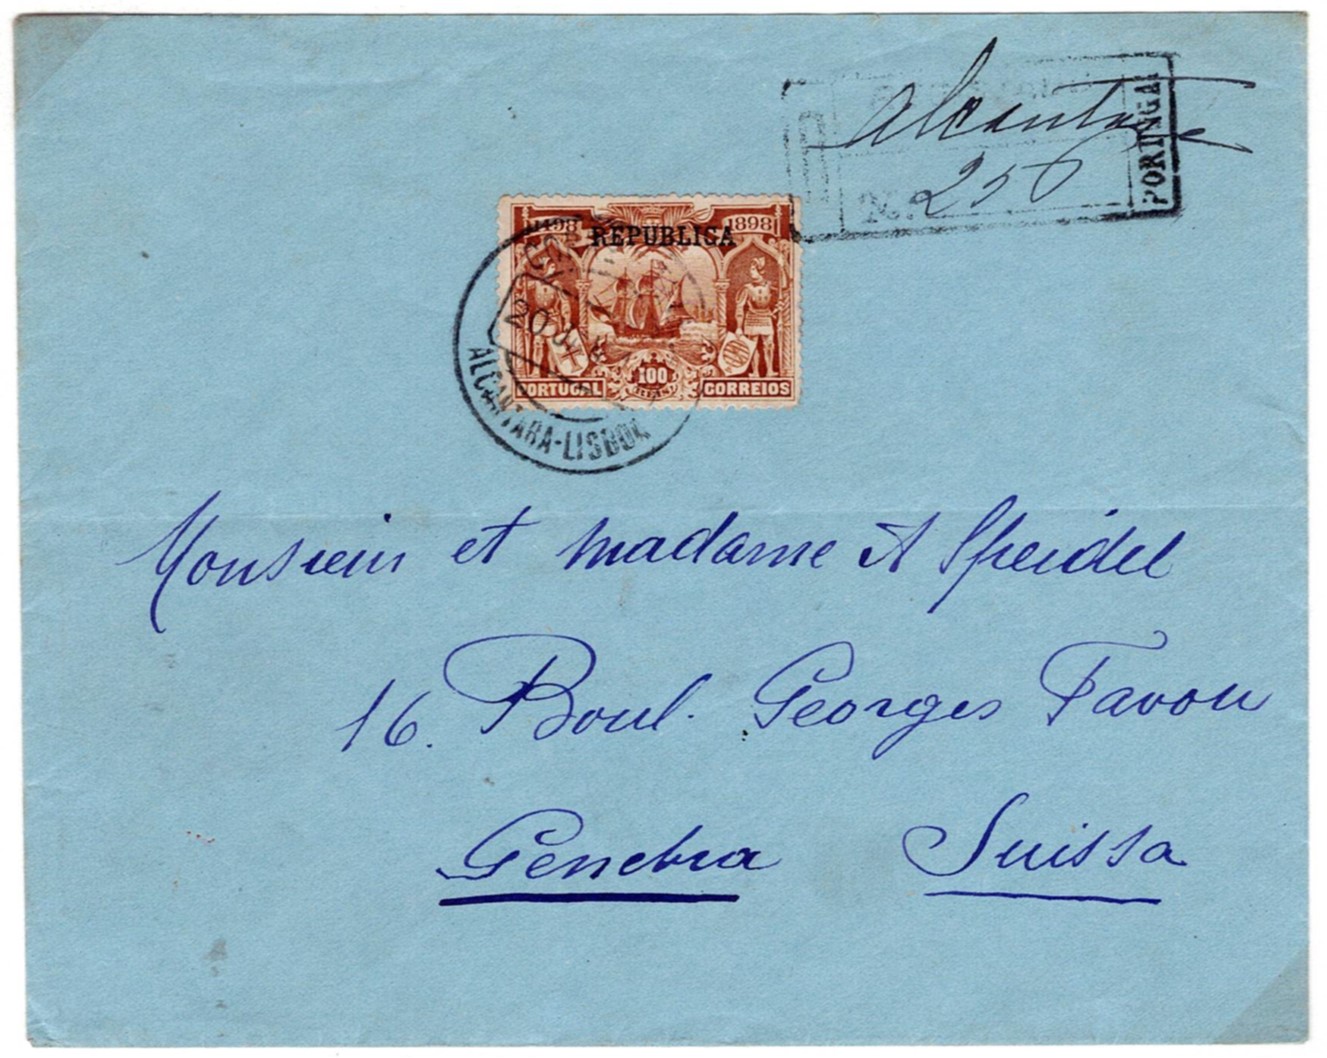 Alcantara
PORTUGAL
Nº 256
1498 1898
REPUBLICA
20
100
PORTUGAL CORREIOS
ALCANTARA-LISBOA
Monsieur et madame A Speidel
16. Boul. Georges Favon
Genebra Suissa